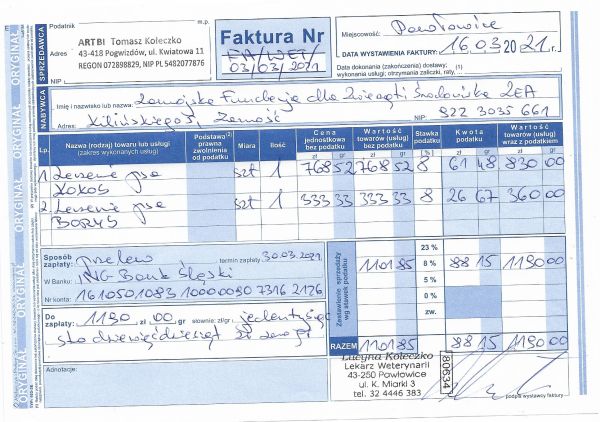 ORYGINAŁ ORYGINAŁ ORYGINAŁ ORYGINAŁ ORYGINAŁ
SPRZEDAWCA
Podatnik
m.p.
ARTBI Tomasz Kołeczko
Adres
43-418 Pogwizdów, ul. Kwiatowa 11
REGON 072898829, NIP PL 5482077876
NIP
Faktura Nr
FA/WET/
03/03/2021
Miejscowość: Pawłowice
DATA WYSTAWIENIA FAKTURY: 16.03 2021 r.
Data dokonania (zakończenia) dostawy;
wykonania usługi; otrzymania zaliczki, raty
NABYWCA
Imię i nazwisko lub nazwa: Zamojska Fundacja dla Zwierząt i Środowiska ZEA
Adres: Kilińskiego, Zamość
NIP: 922 3035 661
Lp. Nazwa (rodzaj) towaru lub usługi (zakres wykonanych usług) Podstawa prawna zwolnienia od podatku Miara Ilość Cena jednostkowa bez podatku Wartość towarów (usług) bez podatku Stawka podatku Kwota podatku Wartość towarów (usług) wraz z podatkiem
zł gr zł gr [%] zł gr zł gr
1 Leczenie psa szt 1 768 52 768 52 8 61 48 830 00
KOKOS
2 Leczenie psa szt 1 333 33 333 33 8 26 67 360 00
BORYS
Sposób zapłaty: przelew termin zapłaty 30.03.2021
W Banku: ING Bank Śląski
Nr konta: 16105010831000009073162126
Do zapłaty: 1190 zł 00 gr słownie: zł/gr jeden tysiąc
sto dziewięćdziesiąt zł zero gr
Adnotacje:
Zestawienie sprzedaży wg stawek podatku
23 %
8 % 1101 85 88 15 1190 00
5 %
0 %
zw.
RAZEM 1101 85 88 15 1190 00
Lucyna Kołeczko
Lekarz Weterynarii
43-250 Pawłowice
ul. K. Miarki 3
tel. 32 4446 383
80634
podpis wystawcy faktury